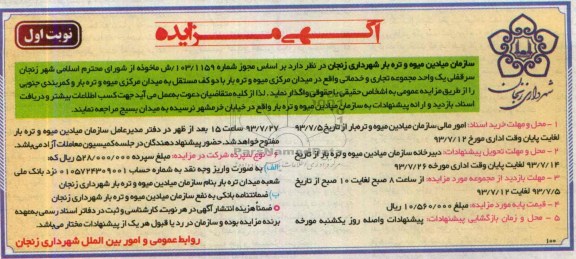 آگهی مزایده
نوبت اول
شهرداری زنجان
سازمان میادین میوه و تره بار شهرداری زنجان در نظر دارد بر اساس مجوز شماره ۱۰۳/۱۱۵۹/ش ماخوذه از شورای محترم اسلامی شهر زنجان
سرقفلی یک واحد مجموعه تجاری و خدماتی واقع در میدان مرکزی میوه و تره بار با دو کف مستقل به میدان مرکزی میوه و تره بار و کمربندی جنوبی
را از طریق مزایده عمومی به اشخاص حقیقی یا حقوقی واگذار نماید. لذا از کلیه متقاضیان دعوت به عمل می آید جهت کسب اطلاعات بیشتر و دریافت
اسناد، بازدید و ارائه پیشنهادات به سازمان میادین میوه و تره بار واقع در خیابان خرمشهر نرسیده به میدان بسیج مراجعه نمایند.
۱- محل و مهلت خرید اسناد: امور مالی سازمان میادین میوه و تره بار از تاریخ ۹۳/۷/۵
لغایت پایان وقت اداری مورخ ۹۳/۷/۱۲
۲- محل و مهلت تحویل پیشنهادات: دبیرخانه سازمان میادین میوه و تره بار از تاریخ
۹۳/۷/۱۴ لغایت پایان وقت اداری مورخه ۹۳/۷/۲۶
۳- مهلت بازدید از مجموعه مورد مزایده: از ساعت ۸ صبح لغایت ۱۰ صبح از تاریخ
۹۳/۷/۵ لغایت ۹۳/۷/۱۲
۴- قیمت پایه مورد مزایده: مبلغ ۱۰/۵۶۰/۰۰۰ ریال
۵- محل و زمان بازگشایی پیشنهادات: پیشنهادات واصله روز یکشنبه مورخه
۹۳/۷/۲۷ ساعت ۱۵ بعد از ظهر در دفتر مدیرعامل سازمان میادین میوه و تره بار
مفتوح خواهد شد. حضور پیشنهاد دهندگان در جلسه کمیسیون معاملات آزاد می باشد.
۶- نوع سپرده شرکت در مزایده: مبلغ سپرده ۵۲۸/۰۰۰/۰۰۰ ریال که:
الف) به صورت واریز وجه نقد به شماره حساب ۰۱۰۵۷۲۴۳۰۹۰۰۱ نزد بانک ملی
شعبه میدان تره بار بنام سازمان میادین میوه و تره بار شهرداری زنجان
ب) ضمانتنامه بانکی به نفع سازمان میادین میوه و تره بار شهرداری زنجان
ضمناً هزینه انتشار آگهی در هر نوبت، کارشناسی و ثبت در دفاتر اسناد رسمی به عهده
برنده مزایده بوده و سازمان در رد یا قبول هر یک از پیشنهادات مختار می باشد.
روابط عمومی و امور بین الملل شهرداری زنجان
۱۰۰